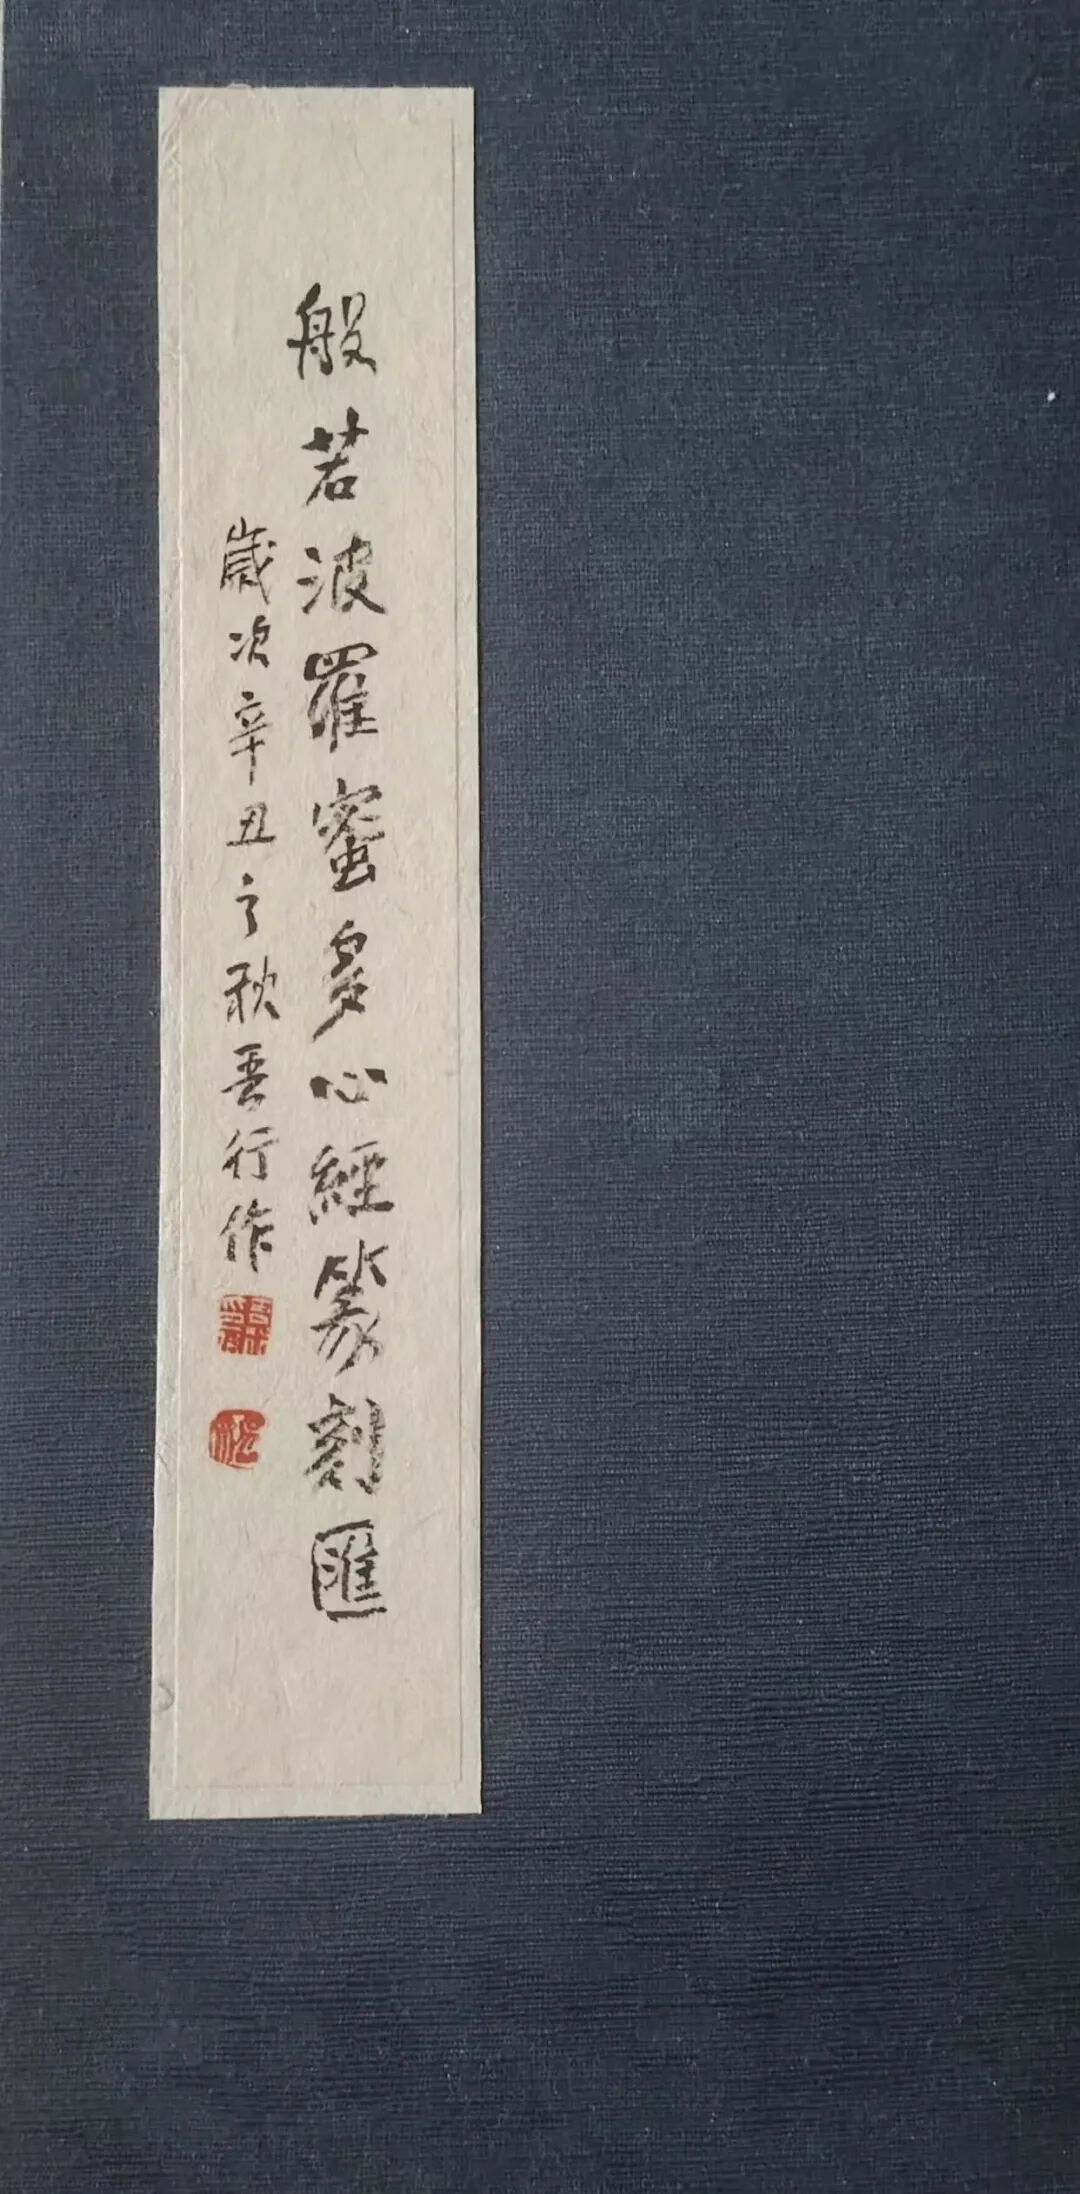 般若波羅蜜多心經篆刻匯
歲次辛丑之秋吾行作